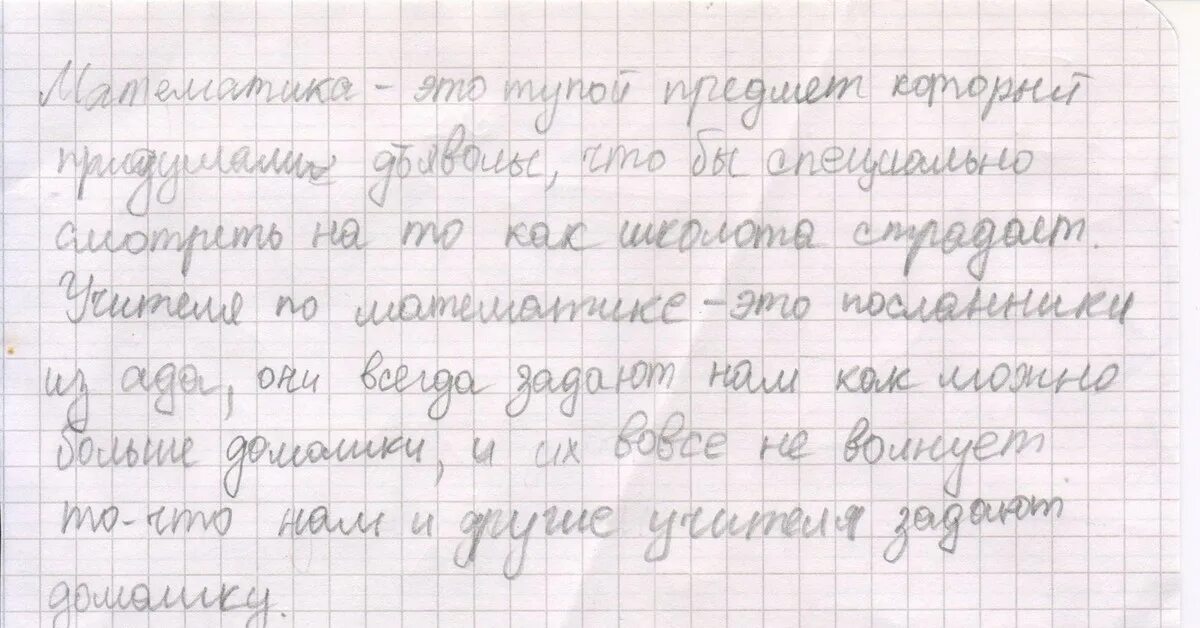 Математика - это тупой предмет который
придумали дъяволы, что бы специально
смотреть на то как школота страдает.
Учителя по математике - это посланники
из ада, они всегда задают нам как можно
больше домашки, и их вовсе не волнует
то-что нам и другие учителя задают
домашку.